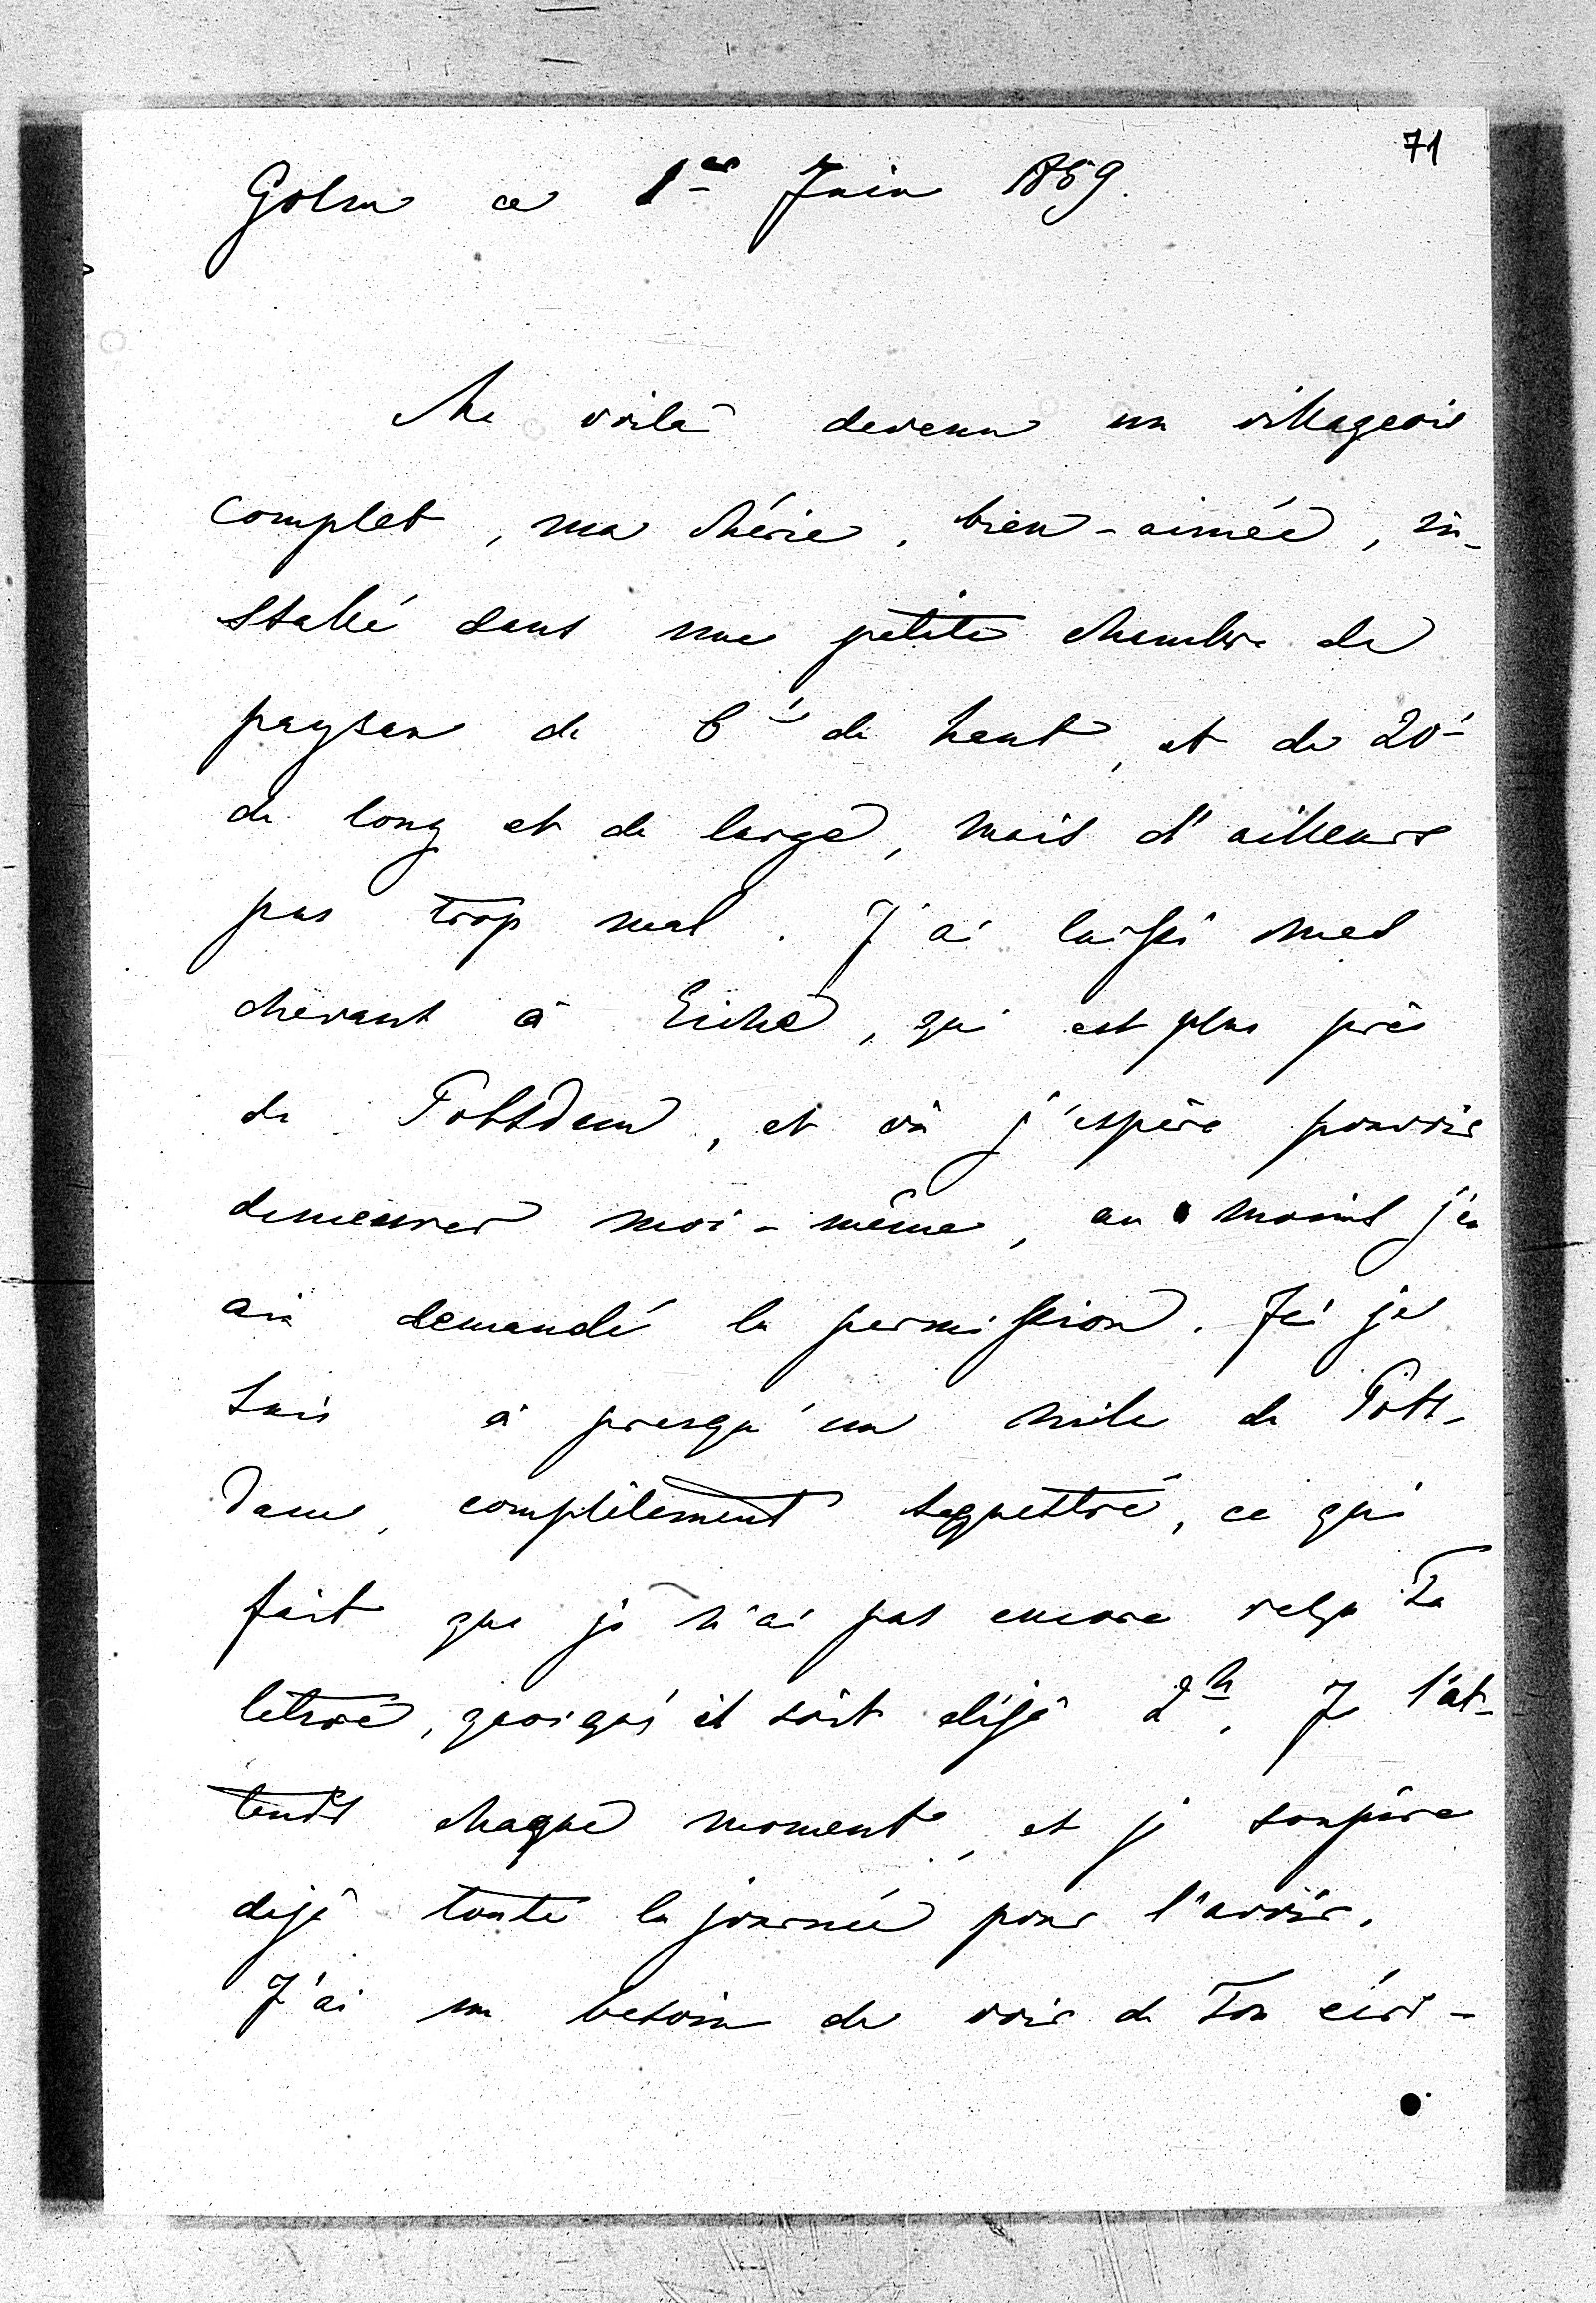 71
Golm ce 1er Juin 1859.
Me voilà devenu un villageois
complet, ma chérie, bien-aimée, in-
stallé dans une petite chambre de
paysan de 6' de haut, et de 20'
de long et de large, mais d'ailleurs
pas trop mal. J'ai laissé mes
chevaux à Eiche, qui est plus près
de Potsdam, et où j'espère pouvoir
demeurer moi-même, au moins j'en
ai demandé la permission. Ici je
suis à presqu'un mile de Pots-
dam, complètement sequestré, ce qui
fait que je n'ai pas encore reçu Ta
lettre, quoiqu'il soit déjà 2h. Je l'at-
tends chaque moment, et je soupire
dejà toute la journée pour l'avoir.
J'ai un besoin de voir de Ton écri-